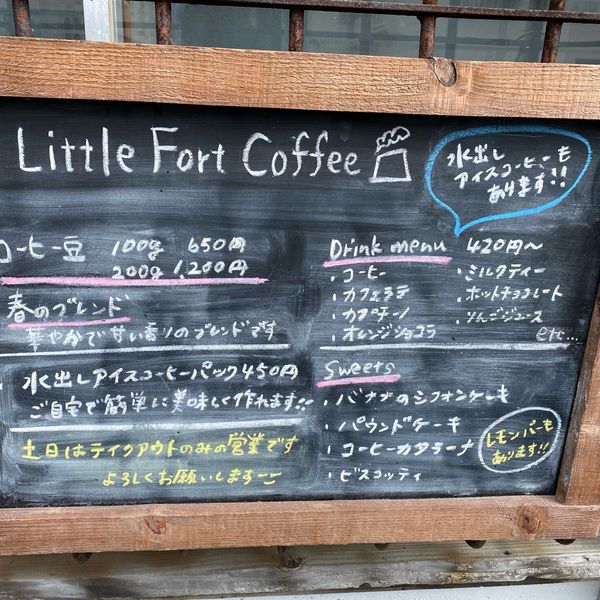 Little Fort Coffee
水出し
アイスコーヒーも
あります!!
コーヒー豆 100g 650円
200g 1,200円
春のブレンド
華やかで甘い香りのブレンドです
水出しアイスコーヒーパック450円
ご自宅で簡単に美味しく作れます!!
土日はテイクアウトのみの営業です
よろしくお願いします
Drink menu 420円〜
・コーヒー
・カフェラテ
・カプチーノ
・オレンジショコラ
・ミルクティー
・ホットチョコレート
・りんごジュース
etc...
Sweets
・バナナのシフォンケーキ
・パウンドケーキ
・コーヒーカタラーナ
・ビスコッティ
レモンバーも
あります!!